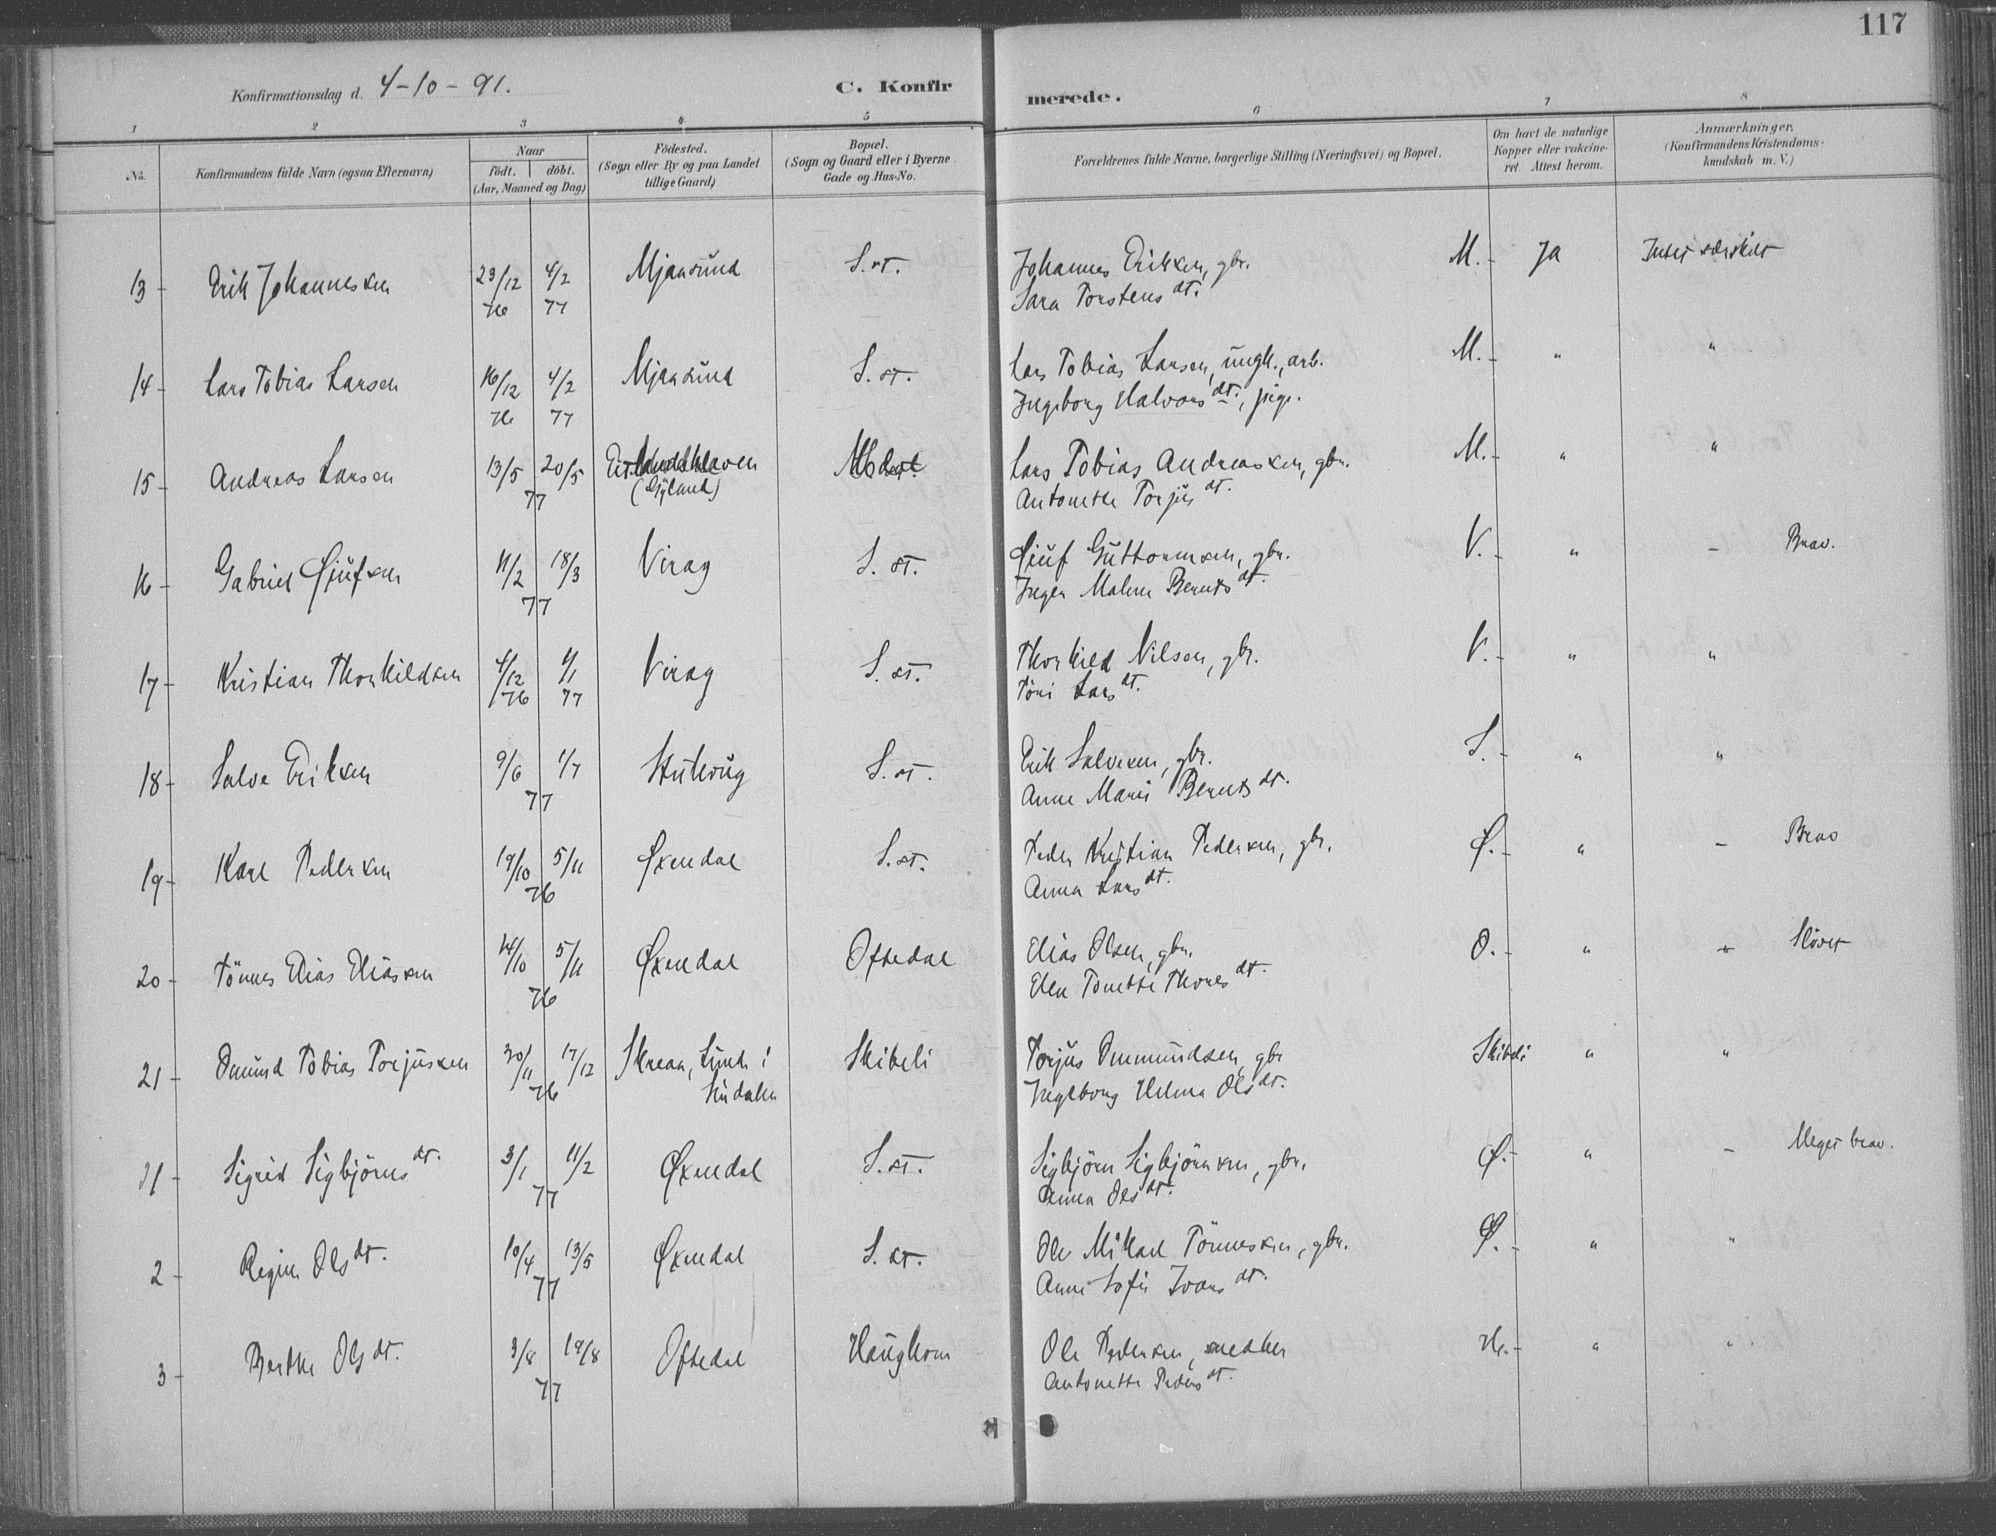 117
Konfirmationsdag d. 4-10-91.
C. Konfirmerede.
1 2 3 4 5 6 7 8
No.
Konfirmandens fulde Navn (ogsaa Efternavn)
Naar
födt. döbt.
(Aar, Maaned og Dag)
Födested.
(Sogn eller By og paa Landet
tillige Gaard)
Bopæl.
(Sogn og Gaard eller i Byerne
Gade og Hus-No.
Forældrenes fulde Navne, borgerlige Stilling (Næringsvei) og Bopæl.
Om havt de naturlige
Kopper eller vakcine-
ret. Attest herom.
Anmærkninger.
(Konfirmandens Kristendoms-
kundskab m. V.)
13 - Erik Johannesen 23/12 4/2 Mjaasund S. st. Johannes Eriksen, gbr. M. - Ja Intet særskilt
76 77 Sara Torstens dt.
14 - Lars Tobias Larsen 16/12 4/2 Mjaasund S. st. Lars Tobias Larsen, ungk., arb. M. - " "
76 77 Ingeborg Halvors dt., pige.
15 - Andreas Larsen 13/5 20/5 Lars Tobias Andreassen, gbr. M. - " "
77 (Gyland) Antonette Torjüs dt.
16 - Gabriel Öjüfsen 11/2 18/3 Virag S. st. Öjüf Güttormsen, gbr. V. - " - Brav.
77 Inger Malene Bernts dt.
17 - Kristian Thorkildsen 4/12 1/1 Virag S. st. Thorkild Nilsen, gbr. V. - " "
76 77 Töni Lars dt.
18 - Salve Eriksen 9/6 1/7 S. st. Erik Salvesen, gbr. S. - " "
77 Anne Marie Bernts dt.
19 - Karl Pedersen 19/10 5/11 Øxendal S. st. Peder Kristian Pedersen, gbr. Ø. - " - Brav
76 Anna Lars dt.
20 - Tönnes Elias Eliassen 14/10 5/11 Øxendal Oftedal Elias Olsen, gbr. O. - " - Sløvet
76 Elen Tonette Thores dt.
21 - Omünd Tobias Torjüsen 30/11 17/12 Skibeli Torjüs Ommündsen, gbr Skibeli " "
76 Ingeborg Helena Ols dt.
21 - Sigrid Sigbjörns dt. 3/1 11/2 Øxendal S. st. Sigbjörn Sigbjörnsen, gbr. Ø. - " - Meget brav.
77 Anna Ols dt.
2 - Regine Ols dt. 10/4 13/5 Øxendal S. st. Ole Mikael Tönnesen, gbr. Ø. - " "
77 Anne Sofie Ivars dt.
3 - Berthe Ols dt. 3/8 19/8 Oftedal Haüghom Ole Pedersen, snedker H. - " "
77 Antonette Peders dt.